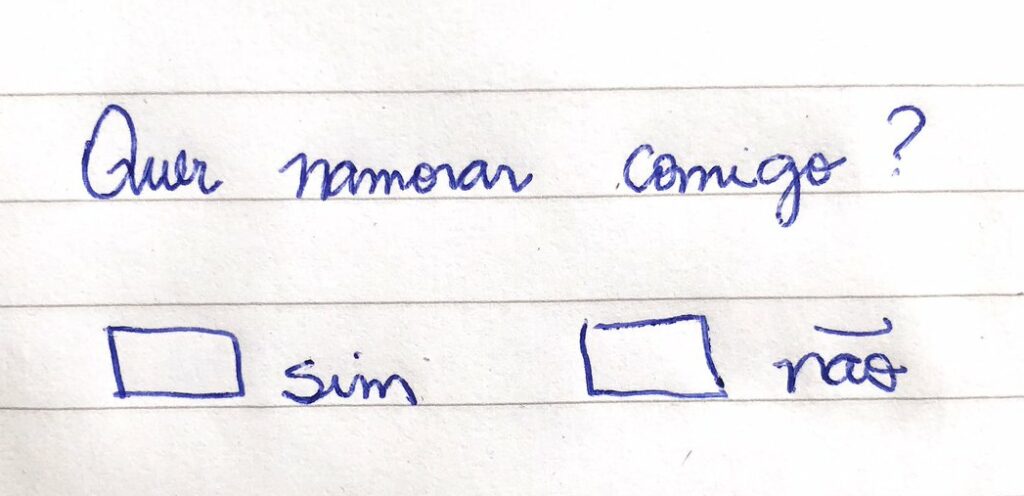 Quer namorar comigo?
sim não